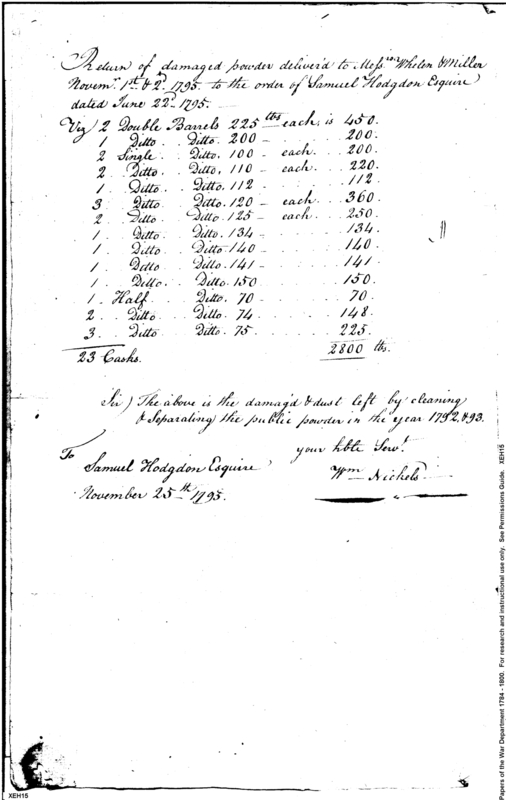 Return of damaged powder deliver'd to Messrs Whelen & Miller
Novemr 1st & 2d 1795. to the order of Samuel Hodgdon Esquire
dated June 22d 1795.
Viz 2 Double Barrels 225 lbs each is 450.
1 Ditto Ditto. 200 - 200.
2 Single Ditto. 100 - each 200.
2 Ditto Ditto. 110 - each 220.
1 Ditto Ditto. 112 - 112.
3 Ditto Ditto. 120 - each 360.
2 Ditto Ditto. 125 - each 250.
1 Ditto Ditto. 134 - 134.
1 Ditto Ditto. 140 - 140.
1 Ditto Ditto. 141 - 141.
1 Ditto Ditto. 150 - 150.
1 Half Ditto. 70 - 70.
2 Ditto Ditto. 74 148.
3 Ditto Ditto. 75 225.
23 Casks. 2800 lbs.
Sir) The above is the damag'd & dust left by cleaning
& Separating the public powder in the year 1792 & 93.
your hble Servt.
To
Samuel Hodgdon Esquire
Wm Nichols
November 25th 1795.
XEH15
Papers of the War Department 1784 - 1800. For research and instructional use only. See Permissions Guide. XEH15